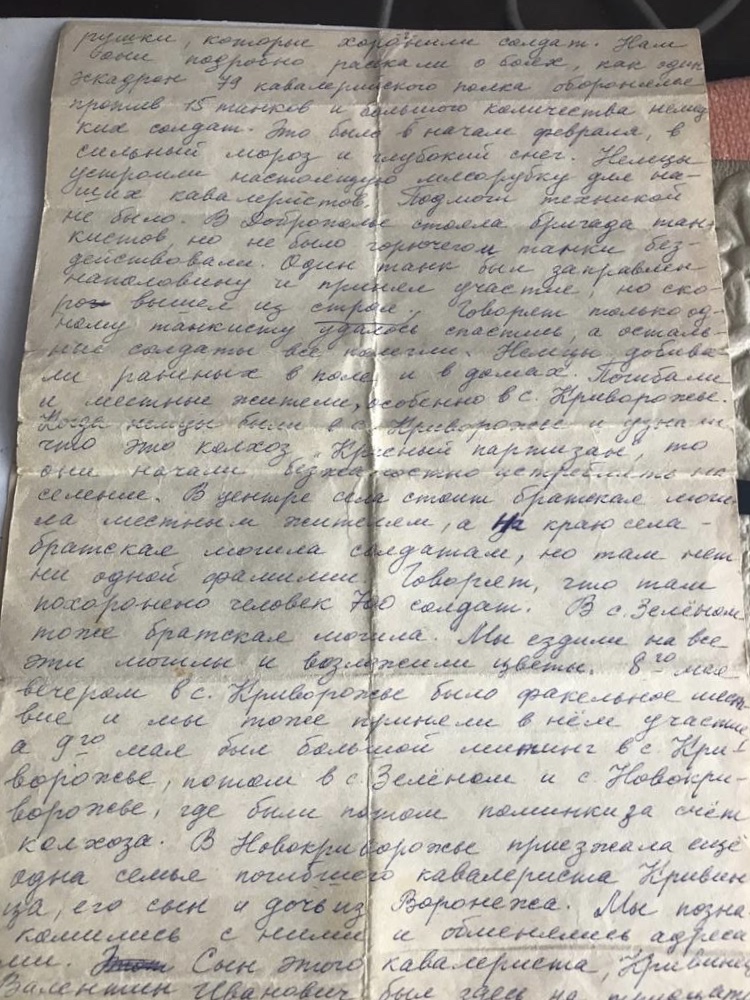 рушки, которые хоронили солдат. Нам
они подробно раскали о боях, как один
эскадрон 79 кавалерийского полка оборонялся
против 15 танков и большого количества немец-
ких солдат. Это было в начале февраля, в
сильный мороз и глубокий снег. Немцы
устроили настоящую мясорубку для на-
ших кавалеристов. Подмоги техникой
не было. В Доброполье стояла бригада тан-
кистов, но не было горючего и танки без-
действовали. Один танк был заправлен
наполовину и принял участие, но ско-
ро вышел из строя. Говорят только од-
ному танкисту удалось спастись, а осталь-
ные солдаты все полегли. Немцы добива-
ли раненых в поле, и в домах. Погибали
и местные жители, особенно в с. Криворожье.
Когда немцы были в с. Криворожье и узнали
что это колхоз „Красный партизан", то
они начали безжалостно истреблять на-
селение. В центре села стоит братская моги-
ла местным жителям, а на краю села -
братская могила солдатам, но там нет
ни одной фамилии. Говорят, что там
похоронено человек 700 солдат. В с. Зелёном
тоже братская могила. Мы ездили на все
эти могилы и возложили цветы. 8го мая
вечером в с. Криворожье было факельное шест-
вие и мы тоже приняли в нём участие
а 9го мая был большой митинг в с. Кри-
ворожье, потом в с. Зелёном и с. Новокри-
ворожье, где были потом поминки за счёт
колхоза. В Новокриворожье приезжала ещё
одна семья погибшего кавалериста Кривен
ца, его сын и дочь из Воронежа. Мы позна
комились с ними и обменялись адреса
ми. Сын этого кавалериста,
Валентин Иванович был здесь на